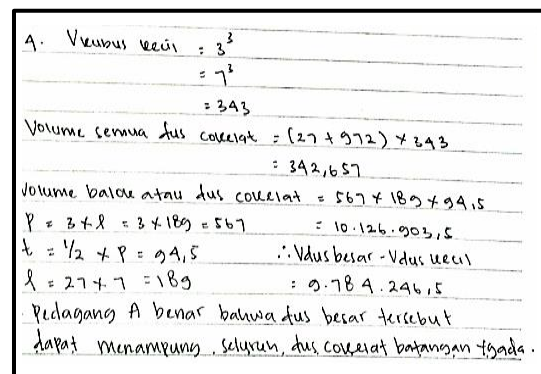 4. Vkubus kecil = 3³
= 7³
= 343
Volume semua dus cokelat = (27 + 972) × 343
= 342,657
Volume balok atau dus cokelat = 567 × 189 × 94,5
P = 3 × l = 3 × 189 = 567 = 10.126.903,5
t = 1/2 × P = 94,5 ∴ Vdus besar - Vdus kecil
l = 27 × 7 = 189 = 9.784.246,5
Pedagang A benar bahwa dus besar tersebut
dapat menampung seluruh dus cokelat batangan yg ada.